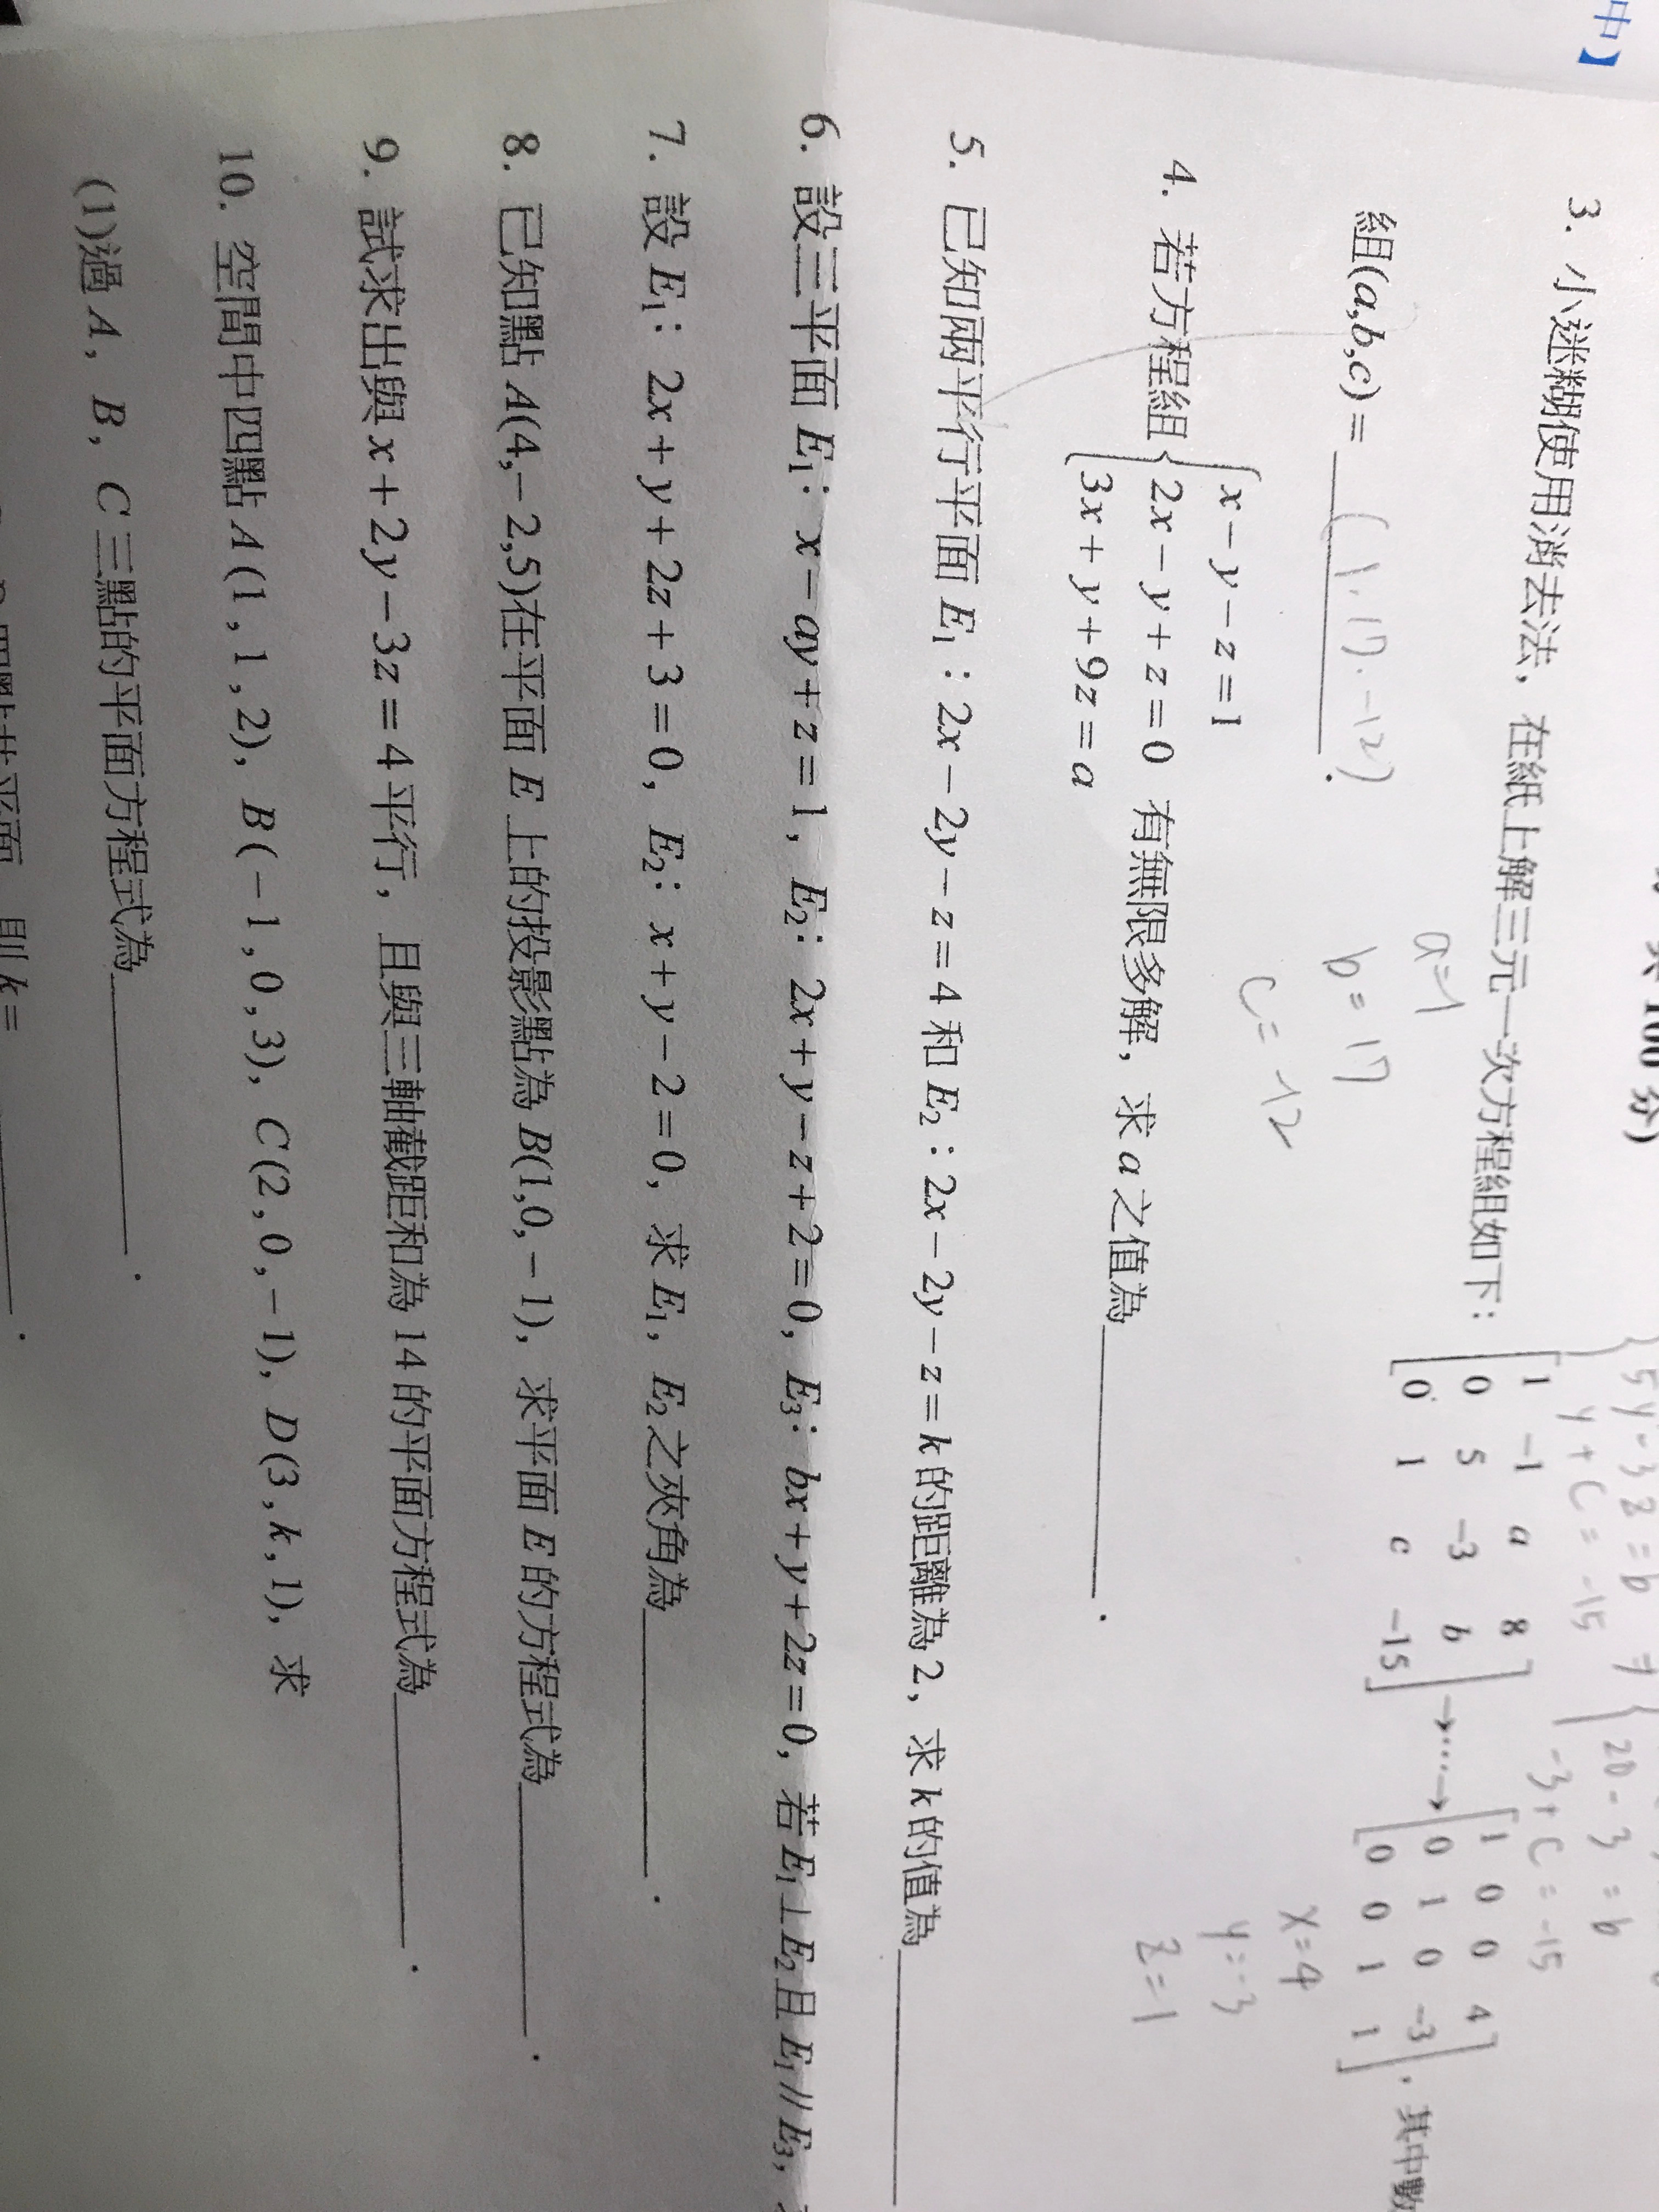 中】
100 分)
3. 小迷糊使用消去法，在紙上解三元一次方程組如下：[1 -1 a 8; 0 5 -3 b; 0 1 c -15] →…→ [1 0 0 4; 0 1 0 -3; 0 0 1 1]，其中數
組(a,b,c) = (1, 17, -12).
5y-3z=b
y+c=-15
20-3=b
-3+c=-15
a=1
b=17
c=-12
x=4
y=-3
z=1
4. 若方程組 { x-y-z=1
2x-y+z=0 有無限多解，求 a 之值為.
3x+y+9z=a
5. 已知兩平行平面 E₁：2x-2y-z=4 和 E₂：2x-2y-z=k 的距離為 2，求 k 的值為
6. 設三平面 E₁：x-ay+z=1，E₂：2x+y-z+2=0，E₃：bx+y+2z=0，若 E₁⊥E₂ 且 E₁//E₃，
7. 設 E₁：2x+y+2z+3=0，E₂：x+y-2=0，求 E₁，E₂ 之夾角為.
8. 已知點 A(4,-2,5)在平面 E 上的投影點為 B(1,0,-1)，求平面 E 的方程式為.
9. 試求出與 x+2y-3z=4 平行，且與三軸截距和為 14 的平面方程式為.
10. 空間中四點 A(1,1,2)，B(-1,0,3)，C(2,0,-1)，D(3,k,1)，求
(1)過 A，B，C 三點的平面方程式為.
四點共平面，則 k=.